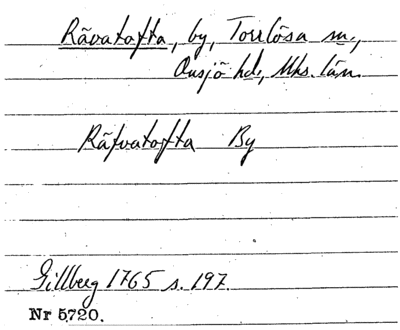 Rävatofta, by, Torrlösa sn.,
Onsjö hd., Mhs. län.
Räfvatofta By
Gillberg 1765 s. 197.
Nr 5720.